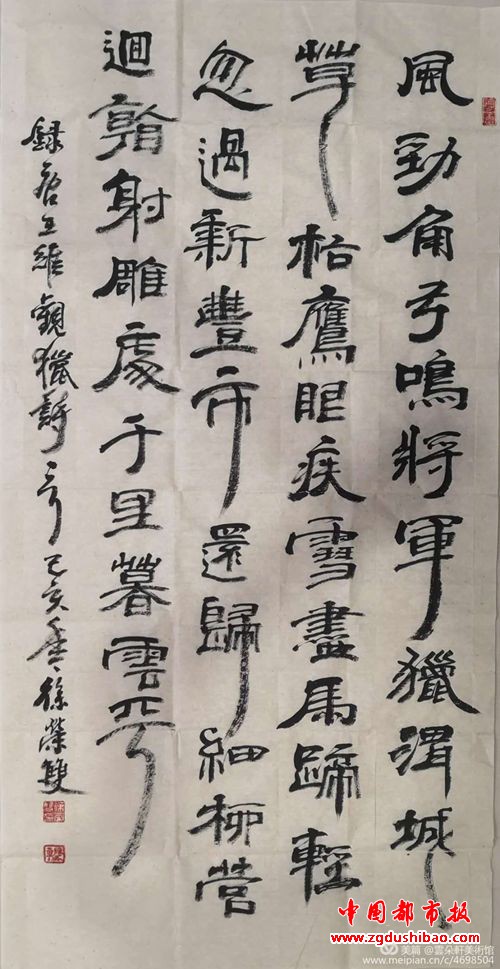 風勁角弓鳴將軍獵渭城
草枯鷹眼疾雪盡馬蹄輕
忽過新豐市還歸細柳營
迴看射雕處千里暮雲平
録唐王維觀獵詩一首己亥春徐榮雙
中国都市报
www.zgdushibao.com
美篇 @雲朵軒美術馆
www.meipian.cn/c/4698504